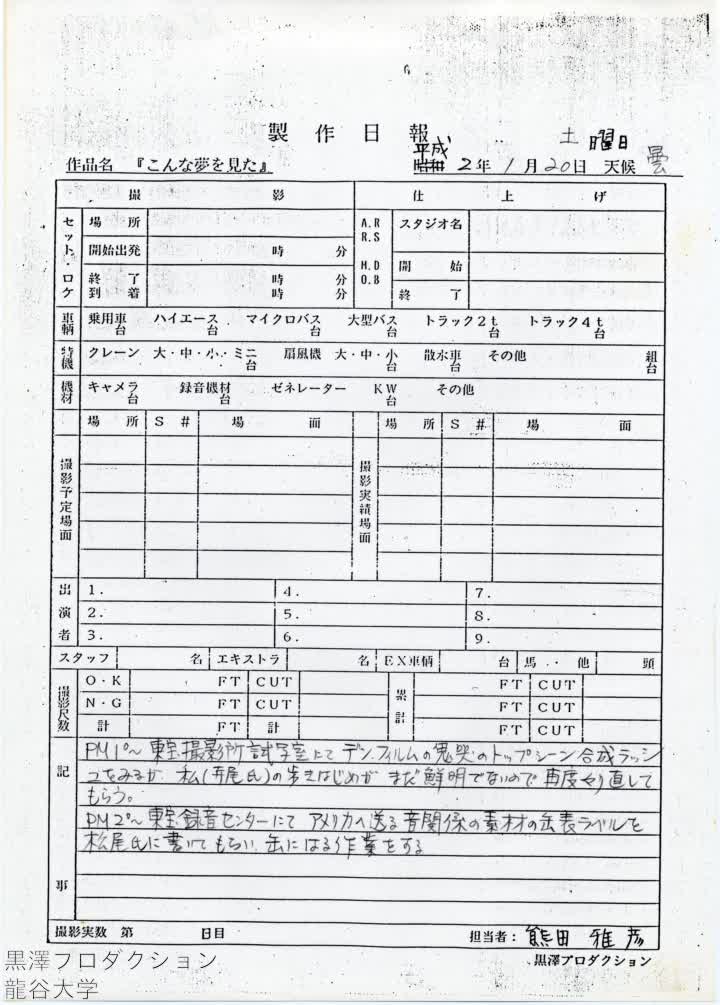 製作日報
土曜日
作品名 『こんな夢を見た』 平成 昭和 2年1月20日 天候 曇
撮影 仕上げ
セット・ロケ 場所 A.R R.S スタジオ名
開始出発 時 分
M.D O.B 開始
終了 時 分
到着 時 分 終了
車輌 乗用車 台 ハイエース 台 マイクロバス 台 大型バス 台 トラック2t 台 トラック4t 台
特機 クレーン 大・中・小・ミニ 台 扇風機 大・中・小 台 散水車 台 その他 組 台
機材 キャメラ 台 録音機材 台 ゼネレーター KW 台 その他
場所 S# 場面 場所 S# 場面
撮影予定場面 撮影実績場面
出演者 1. 4. 7.
2. 5. 8.
3. 6. 9.
スタッフ 名 エキストラ 名 EX車輌 台 馬・他 頭
撮影尺数 O・K FT CUT 累計 FT CUT
N・G FT CUT FT CUT
計 FT 計 FT CUT
記事
PM1°～東宝撮影所試写室にて デン・フィルムの鬼哭のトップシーン合成ラッシ
ュをみるが 松(寺尾氏)の歩きはじめが まだ鮮明でないので 再度やり直して
もらう。
PM2°～東宝録音センターにて アメリカへ送る音関係の素材の缶表ラベルを
松尾氏に書いてもらい、缶にはる作業をする
撮影実数 第 日目 担当者: 熊田雅彦
黒澤プロダクション
黒澤プロダクション
龍谷大学